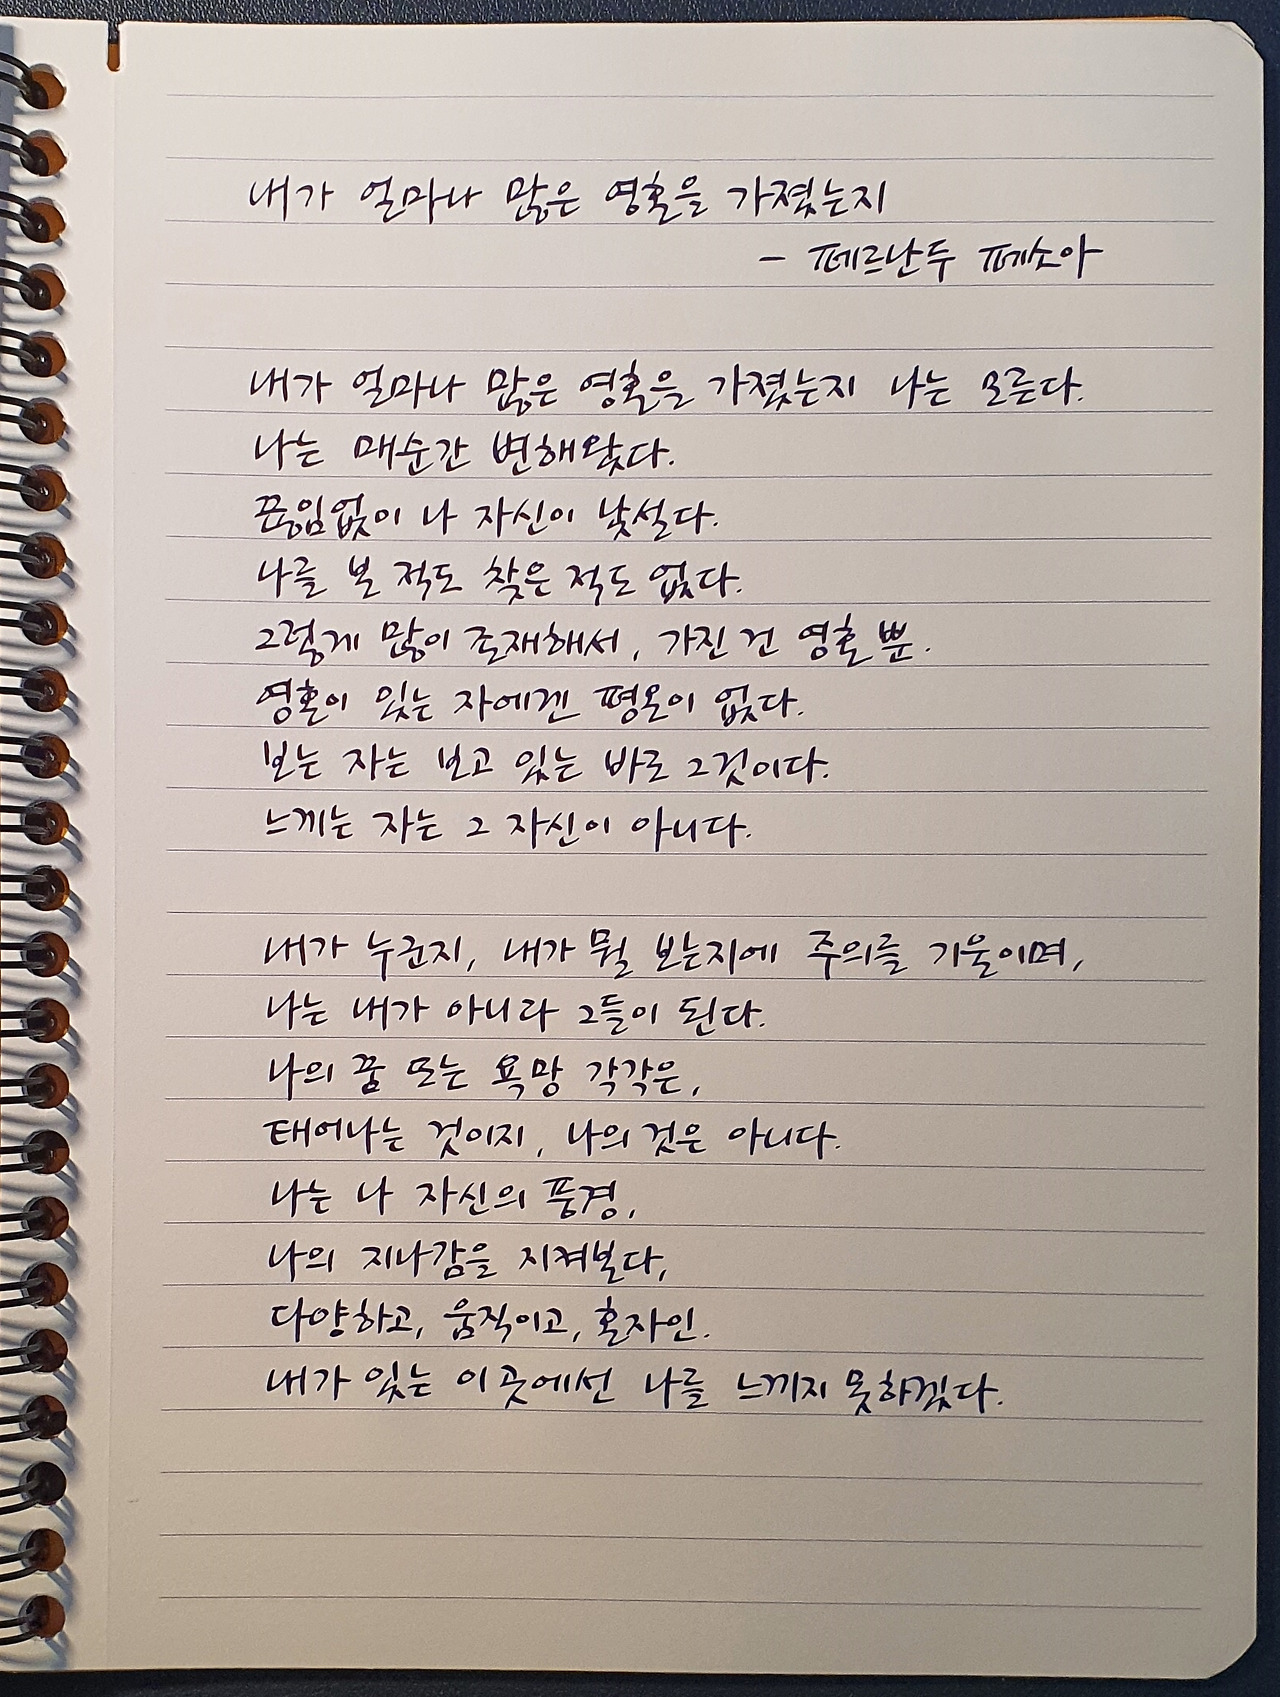 내가 얼마나 많은 영혼을 가졌는지
- 페르난두 페소아
내가 얼마나 많은 영혼을 가졌는지 나는 모른다.
나는 매순간 변해왔다.
끊임없이 나 자신이 낯설다.
나를 본 적도 찾은 적도 없다.
그렇게 많이 존재해서, 가진 건 영혼뿐.
영혼이 있는 자에겐 평온이 없다.
보는 자는 보고 있는 바로 그것이다.
느끼는 자는 그 자신이 아니다.
내가 누군지, 내가 뭘 보는지에 주의를 기울이며,
나는 내가 아니라 그들이 된다.
나의 꿈 또는 욕망 각각은,
태어나는 것이지, 나의 것은 아니다.
나는 나 자신의 풍경,
나의 지나감을 지켜본다,
다양하고, 움직이고, 혼자인.
내가 있는 이 곳에선 나를 느끼지 못하겠다.